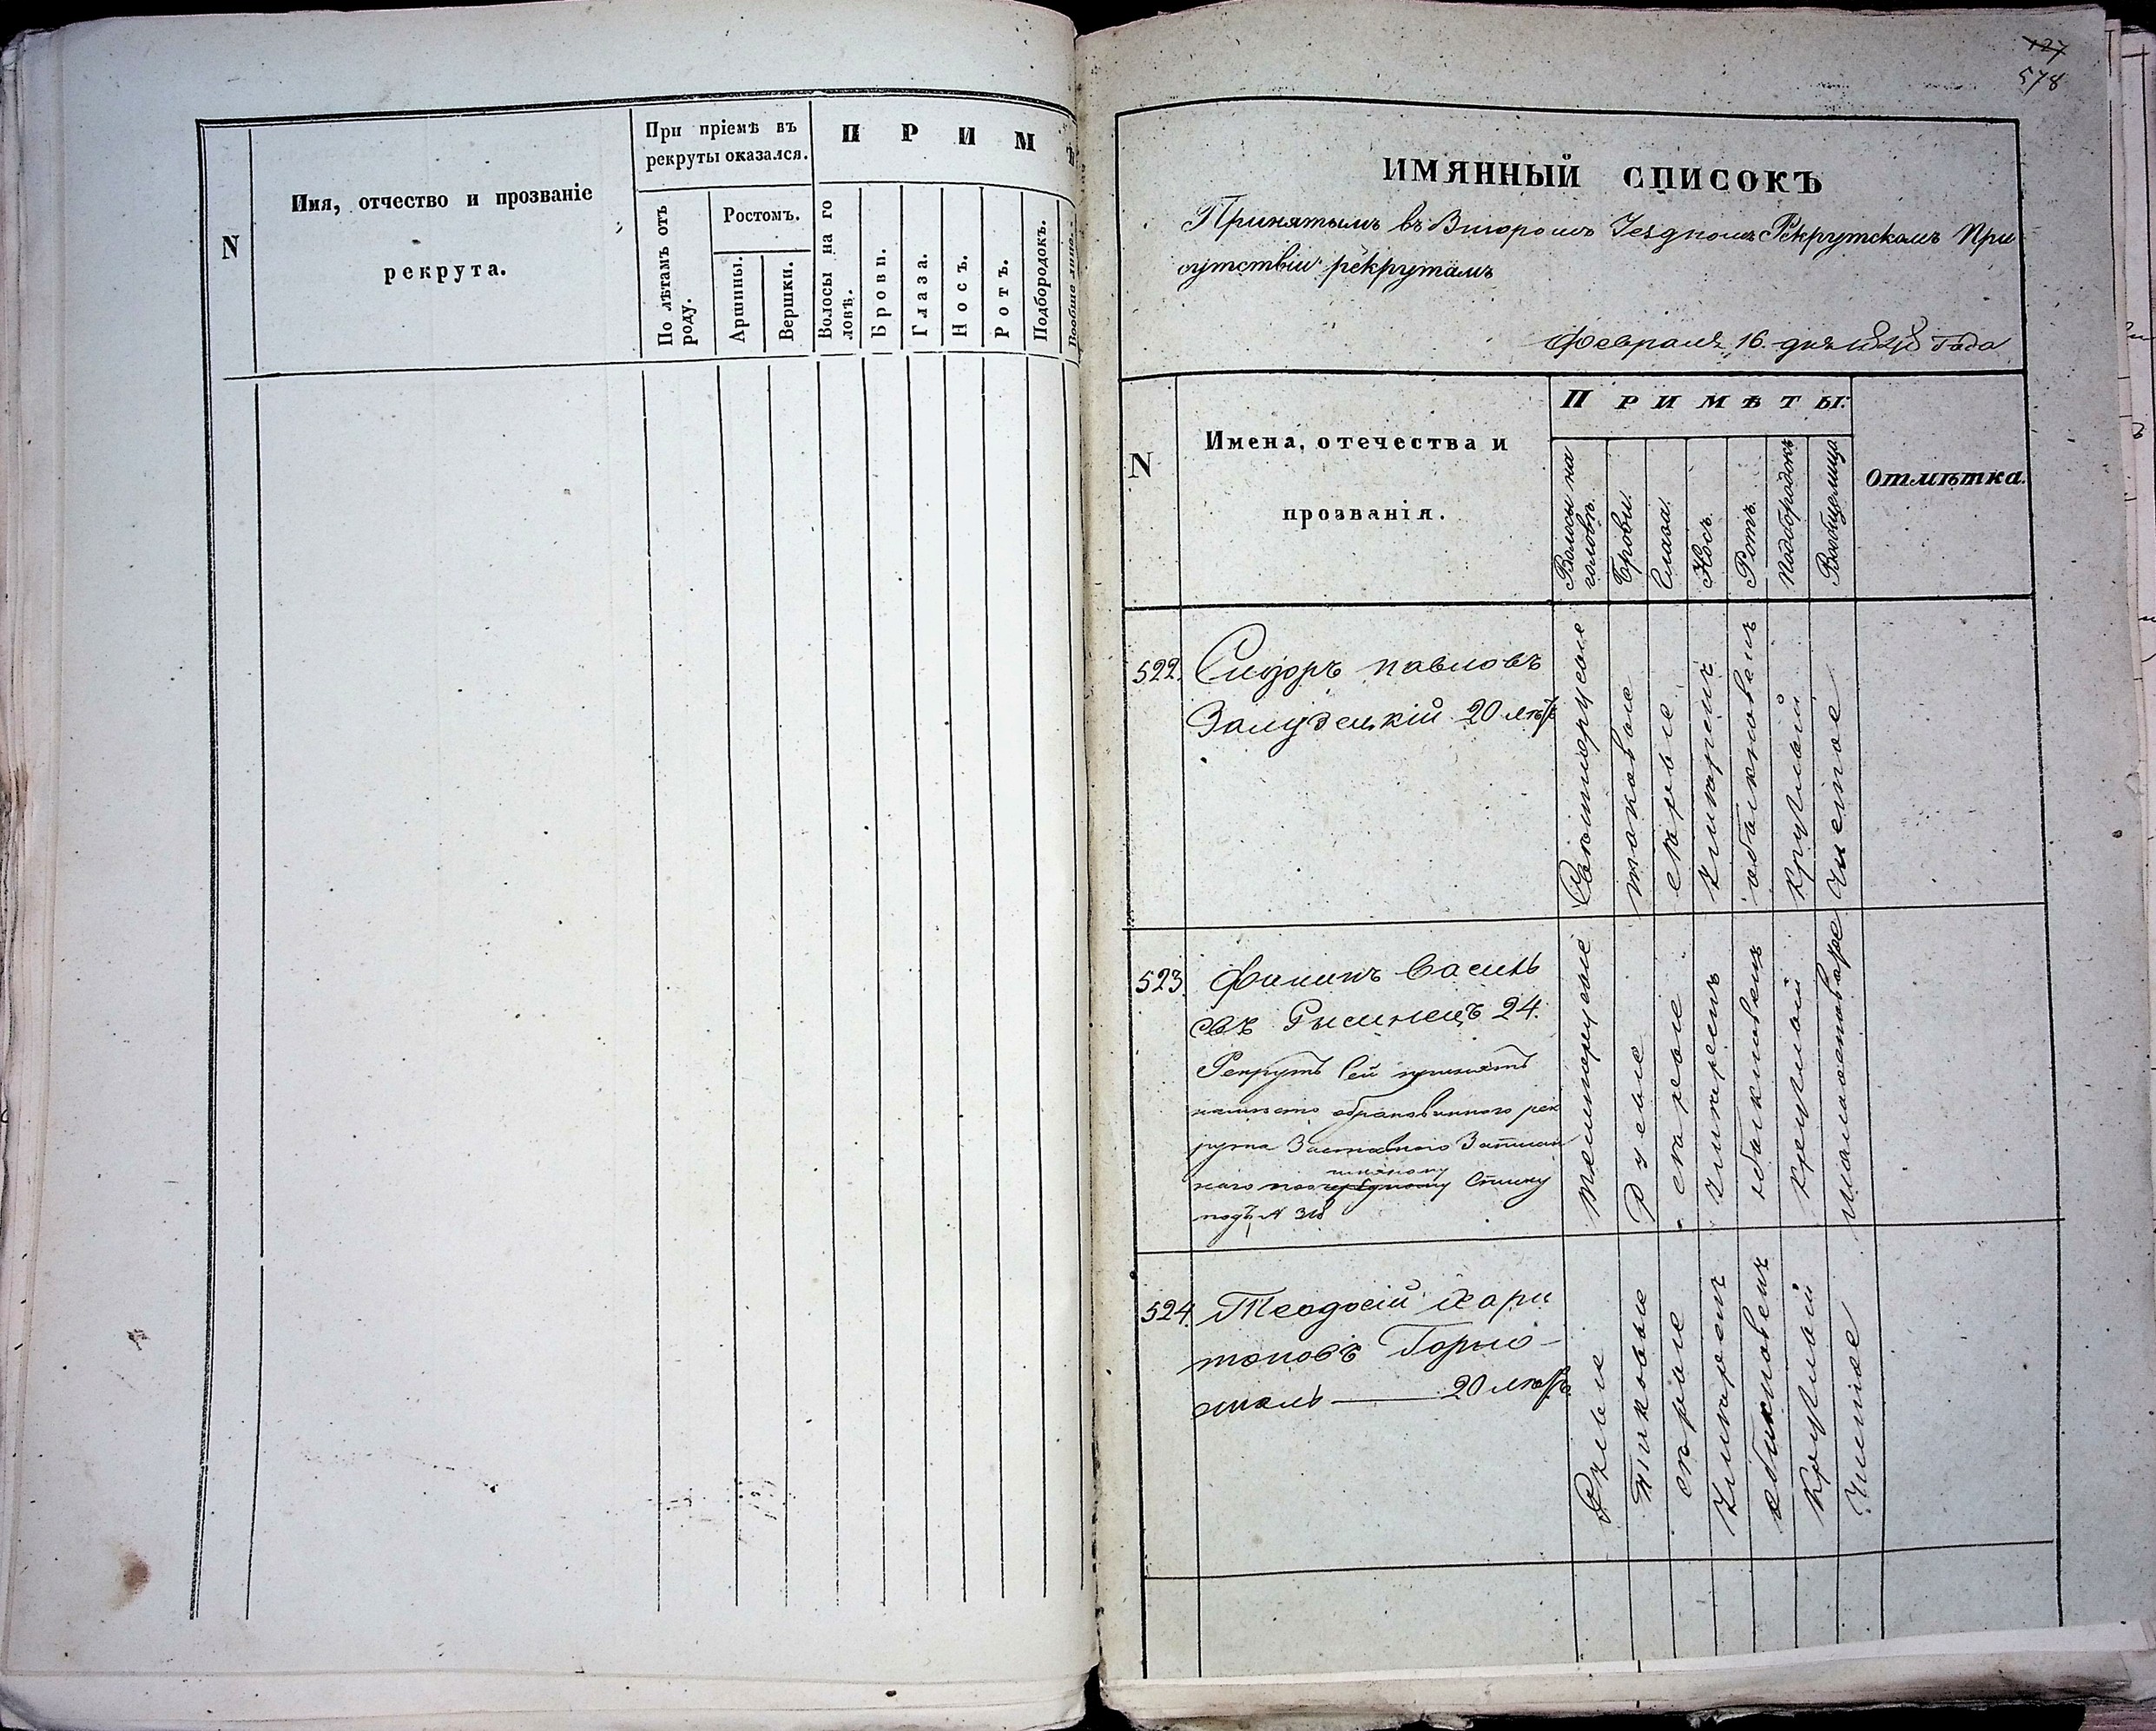 N
Имя, отчество и прозваніе
рекрута.
При пріемѣ въ
рекруты оказался.
По лѣтамъ отъ
роду.
Ростомъ.
Аршины.
Вершки.
П Р И М Ѣ
Волосы на го
ловѣ.
Брови.
Глаза.
Носъ.
Ротъ.
Подбородокъ.
Вообще лице.
127
578
ИМЯННЫЙ СПИСОКЪ
Принятымъ въ Второмъ Уездномъ Рекрутскомъ При
сутствіи рекрутамъ
Февраля 16. дня 1848 Года
N
Имена, отечества и
прозванія.
ПРИМѢТЫ.
Волосы на
головѣ.
Брови.
Глаза.
Носъ.
Ротъ.
Подбородокъ
Вообще лица
Отмѣтка.
522.
Сидоръ павловъ
Залузецкій 20 лѣтъ
Свѣтлорусые
таковые
серые
Умѣренъ
обыкновенъ
круглый
Чистое
523.
Филипъ Василь
евъ 24.
Рекрутъ сей принятъ
намѣсто обракованного рек
рута
по Списку
подъ N
темнорусые
Русые
серые
Умѣренъ
обыкновенъ
круглый
524.
Теодосій Хари
тоновъ Горно
сталь — 20 лѣтъ
Русые
Таковые
серые
Умѣренъ
обыкновенъ
круглый
Чистое